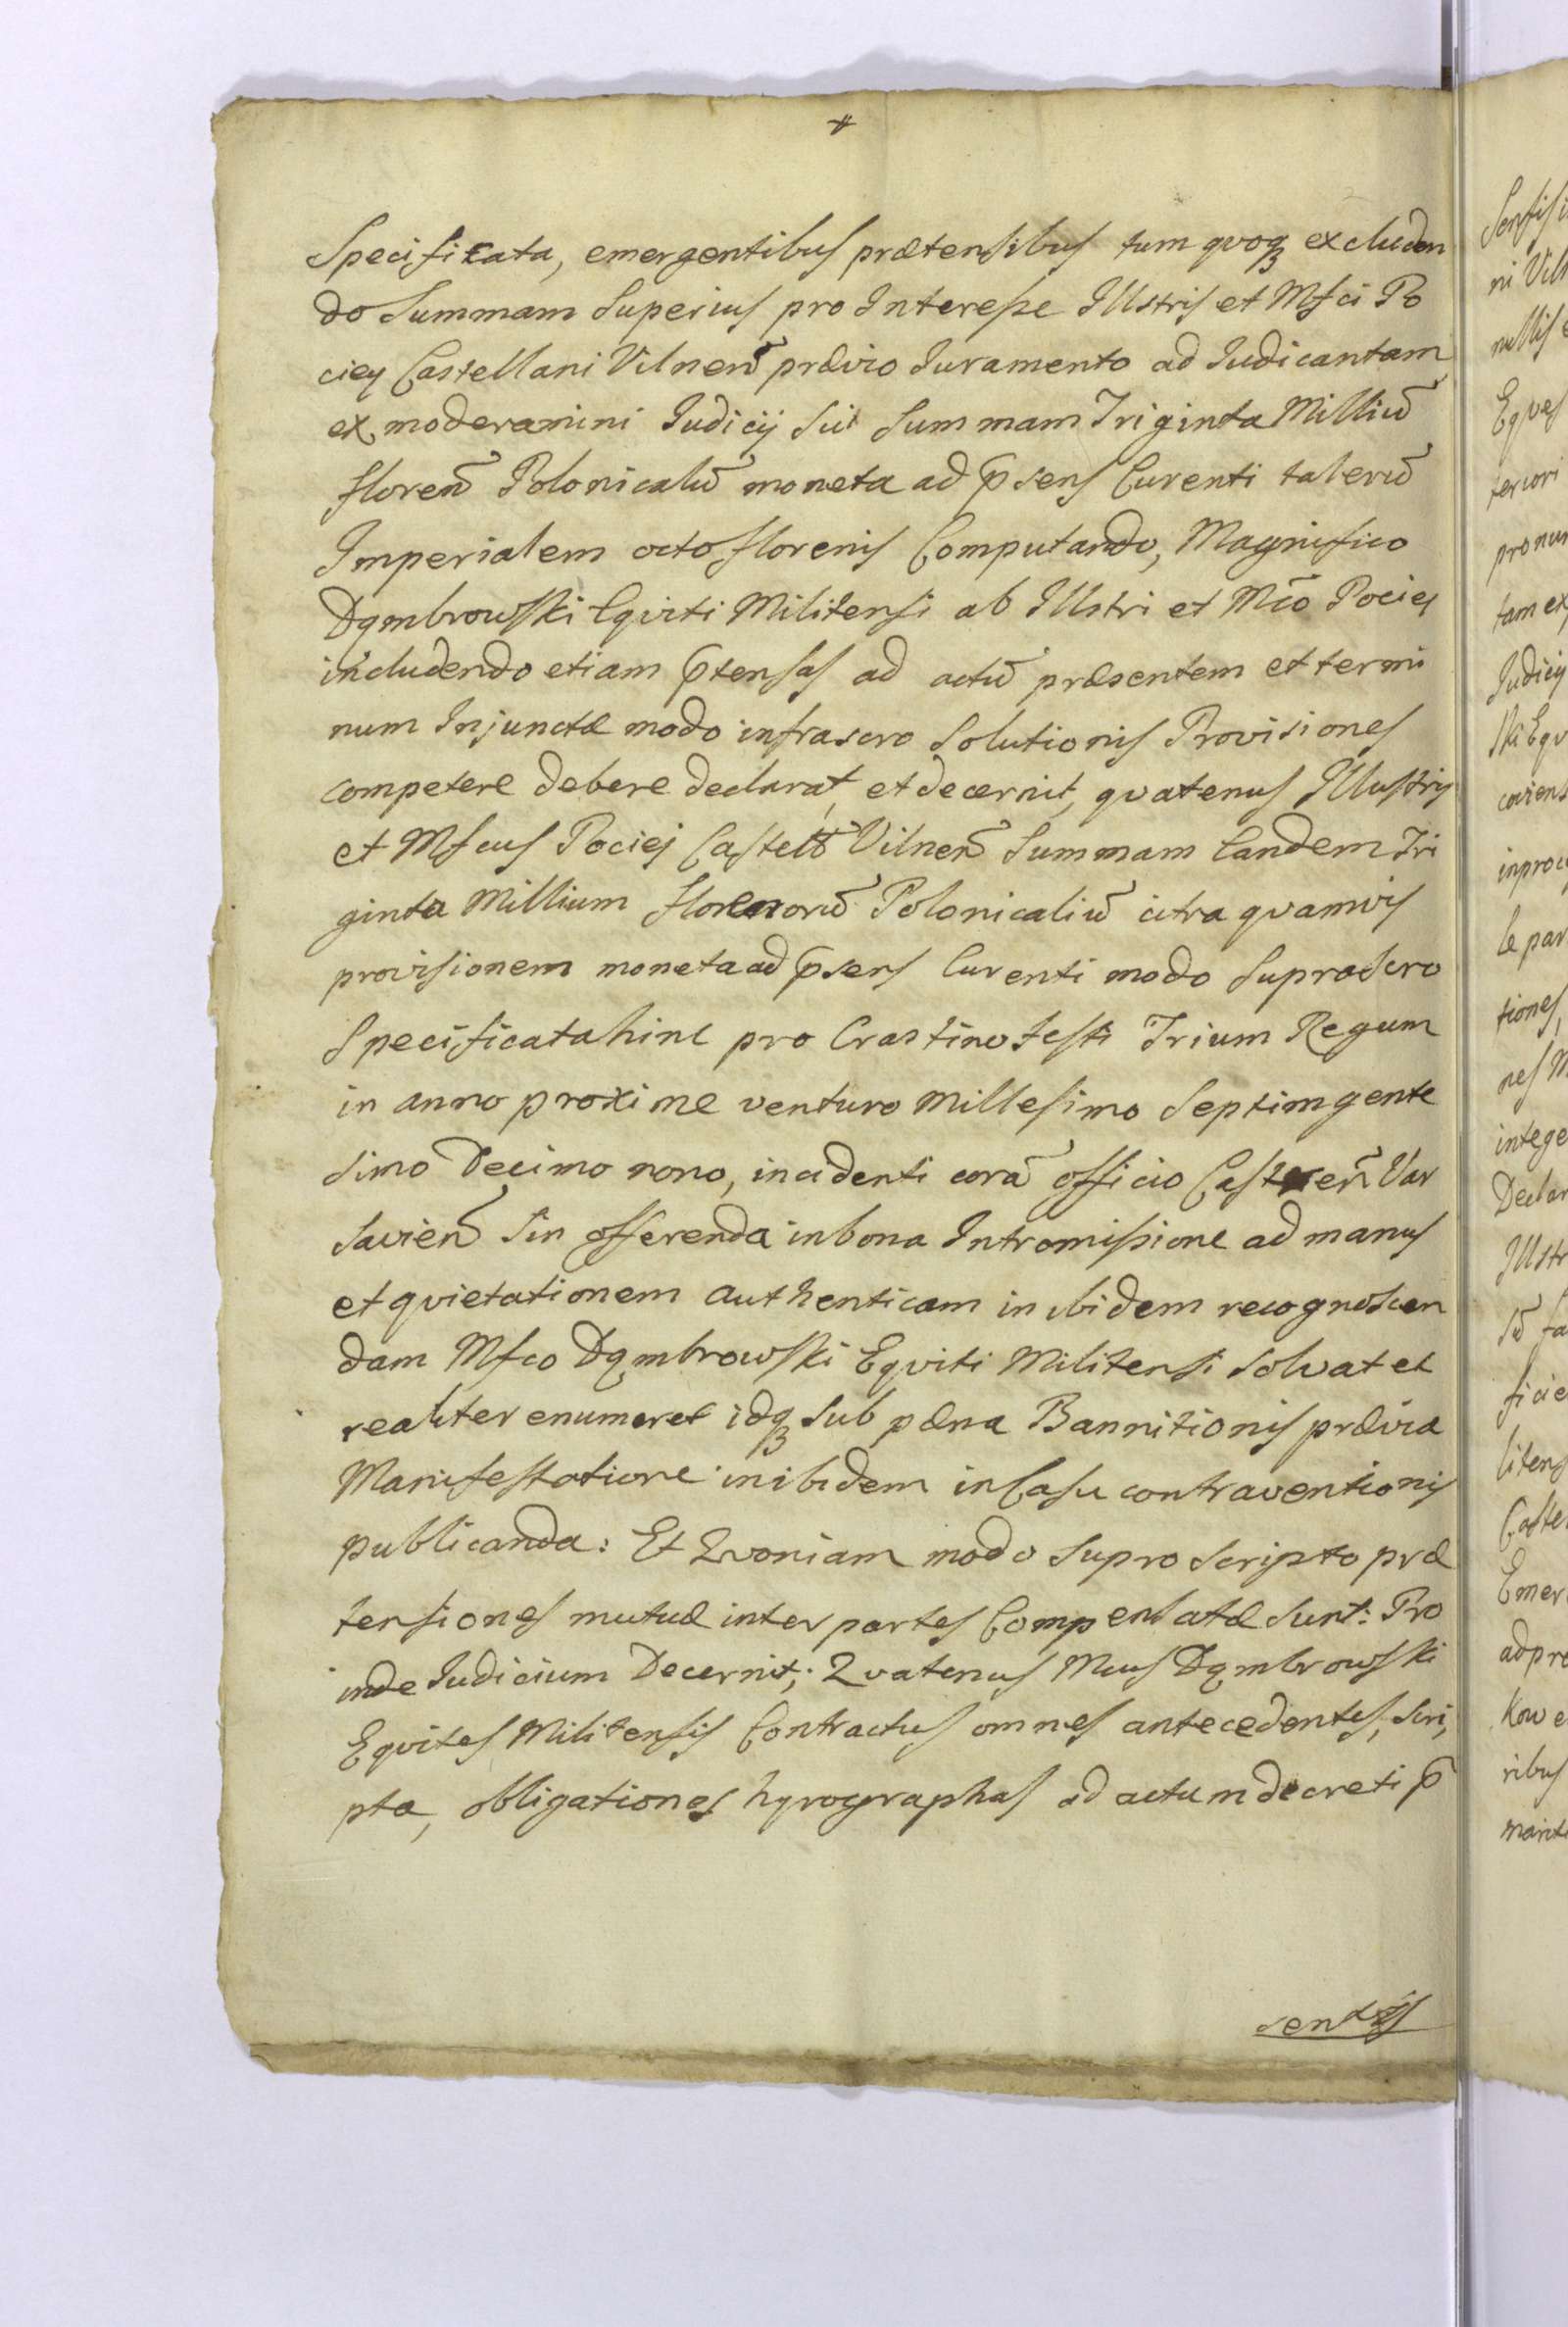 Specificata, emergentibus prætensibus tum quoq3 excluden
do Summam Superius pro Interesse Illstris et Mfci Po
ciey Castellani Vilnen̄ prævio Iuramento ad Iudicantam
ex moderamini Iudicij Sui Summam Triginta Milliū
floren̄ Polonicaliū moneta ad p̄sens Curenti talerū
Imperialem octo florenis Computando, Magnifico
Dąmbrowski Eqviti Militensi ab Illstri et Mc̄o Pociej
includendo etiam p̄tensas ad actū præsentem et termi
num Injunctæ modo infrascro Solutionis Provisiones
competere debere declarat, et decernit, qvatenus Illustris
et Mfcus Pociej Castell̄ Vilnen̄ Summam Eandem Tri
ginta Millium florenorū Polonicaliū citra qvamvis
provisionem moneta ad p̄sens Curenti modo Suprascro
Specificata hinc pro Crastino festi Trium Regum
in anno proxime venturo Millesimo Septimgente
simo Decimo nono, incidenti corā officio Castren̄ Var
savien̄ Sin offerenda in bona Intromissione ad manus
et qvietationem authenticam in ibidem recognoscen
dam Mfco Dąmbrowski Eqviti Militensi Solvat et
realiter enumeret idq3 Sub pæna Bannitionis prævia
Manifestatione inibidem in Casu contraventionis
publicanda: Et Qvoniam modo Supro scripto præ
tensiones mutuæ inter partes Compensatæ Sunt: Pro
inde Iudicium Decernit; Qvatenus Mcus Dąmbrowski
Eqvites Militensis Contractus omnes antecedentes, Scri,
pta, obligationes hyrographas ad actum decreti p̄